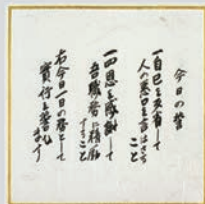 今日の誓
一自己を反省して
人の悪口を言はざる
こと
一四恩を感謝して
吾職務に精励
すること
右今日一日の誓として
實行を誓ひ
ます